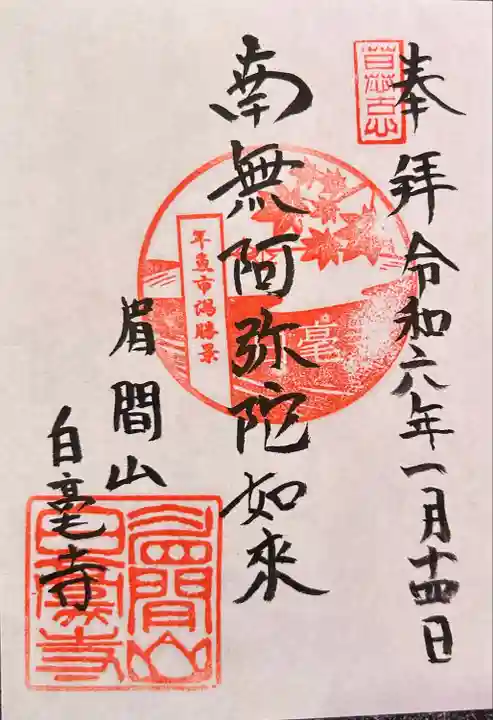 奉拝 令和六年一月十四日
南無阿弥陀如来
年魚市潟勝景
眉間山
白毫寺
眉間山
白毫寺